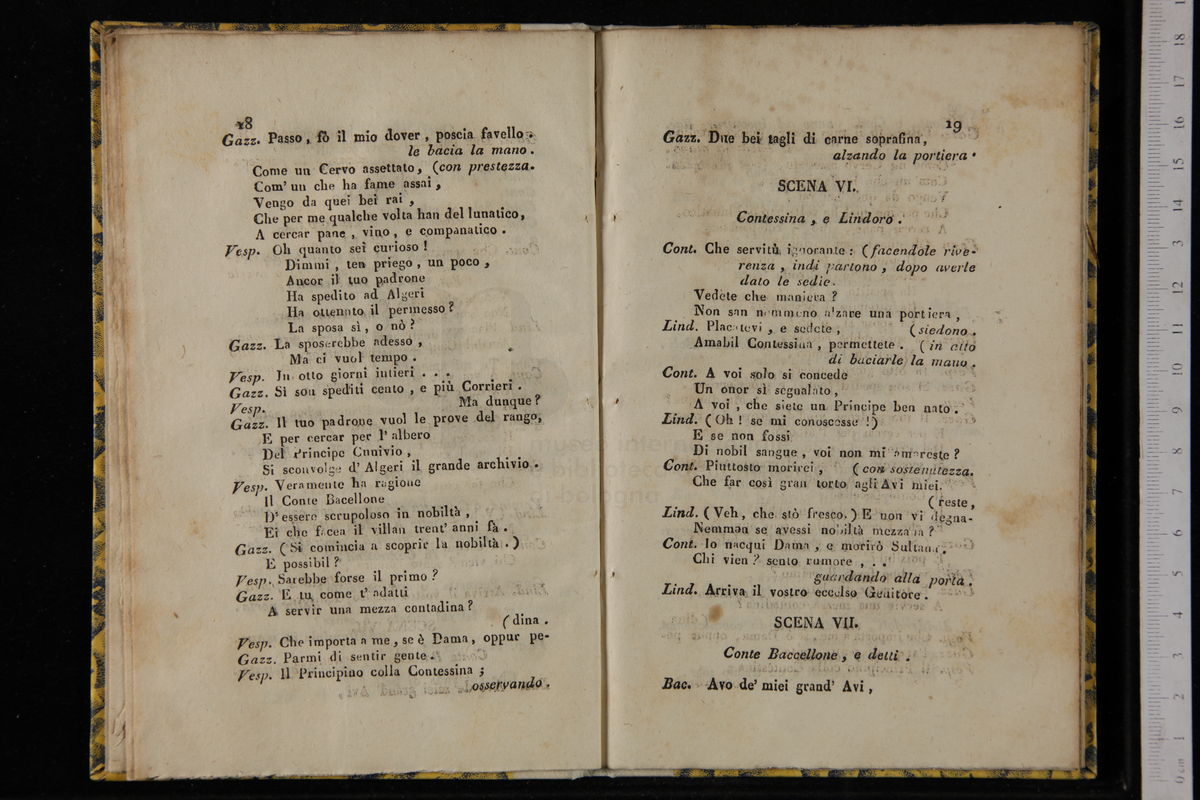 18
Gazz. Passo, fò il mio dover, poscia favello.
le bacia la mano.
Come un Cervo assettato, (con prestezza.
Com' un che ha fame assai,
Vengo da quei bei rai,
Che per me qualche volta han del lunatico,
A cercar pane, vino, e companatico.
Vesp. Oh quanto sei curioso!
Dimmi, ten priego, un poco,
Ancor il tuo padrone
Ha spedito ad Algeri
Ha ottenuto il permesso?
La sposa sì, o nò?
Gazz. La sposerebbe adesso,
Ma ci vuol tempo.
Vesp. In otto giorni intieri . . .
Gazz. Sì son spediti cento, e più Corrieri.
Vesp. Ma dunque?
Gazz. Il tuo padrone vuol le prove del rango,
E per cercar per l' albero
Del Principe Cnnivio,
Si sconvolge d' Algeri il grande archivio.
Vesp. Veramente ha ragione
Il Conte Bacellone
D' essere scrupoloso in nobiltà,
Ei che facea il villan trent' anni fà.
Gazz. (Si comincia a scoprir la nobiltà.)
E possibil?
Vesp. Sarebbe forse il primo?
Gazz. E tu come t' adatti
A servir una mezza contadina?
(dina.
Vesp. Che importa a me, se è Dama, oppur pe-
Gazz. Parmi di sentir gente.
Vesp. Il Principino colla Contessina;
osservando.
19
Gazz. Due bei tagli di carne soprafina,
alzando la portiera.
SCENA VI.
Contessina, e Lindoro.
Cont. Che servitù ignorante: (facendole rive-
renza, indi partono, dopo averle
dato le sedie.
Vedete che maniera?
Non san nemmeno alzare una portiera,
Lind. Placatevi, e sedete, (siedono.
Amabil Contessina, permettete. (in atto
di baciarle la mano.
Cont. A voi solo si concede
Un onor sì segnalato,
A voi, che siete un Principe ben nato.
Lind. (Oh! se mi conoscesse!)
E se non fossi
Di nobil sangue, voi non mi amereste?
Cont. Piuttosto morirei, (con sostenutezza.
Che far così gran torto agli Avi miei.
(reste,
Lind. (Veh, che stò fresco.) E non vi degna-
Nemmen se avessi nobiltà mezzana?
Cont. Io nacqui Dama, e morirò Sultana.
Chi vien? sento rumore, . .
guardando alla porta.
Lind. Arriva il vostro eccelso Genitore.
SCENA VII.
Conte Baccellone, e detti.
Bac. Avo de' miei grand' Avi,